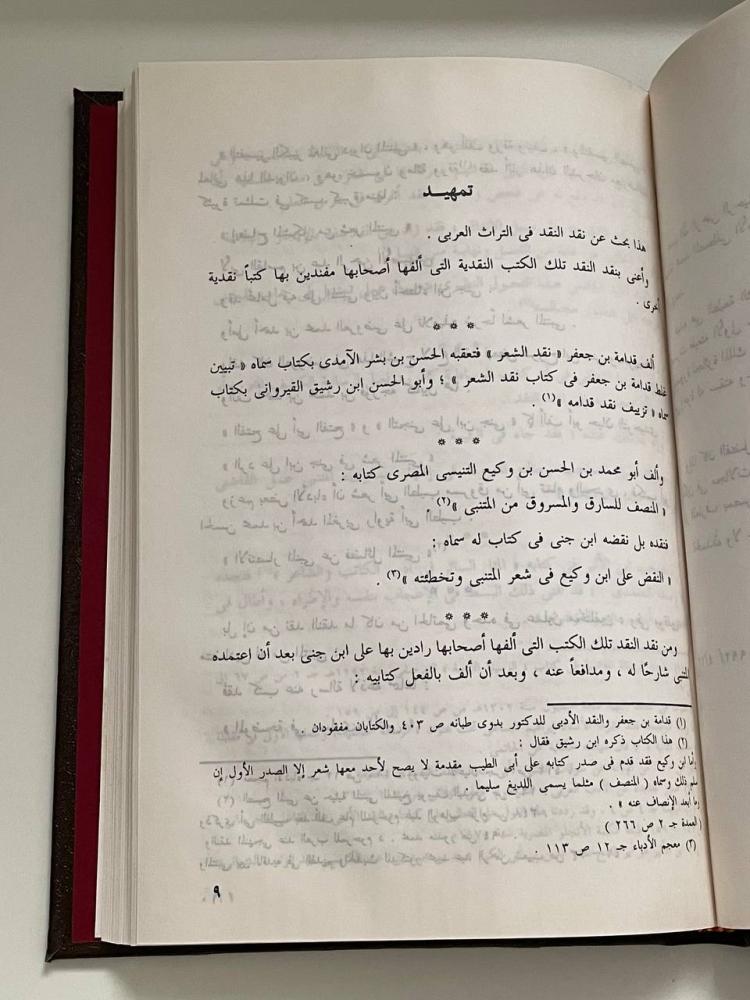 تمهيد
هذا بحث عن نقد النقد فى التراث العربى .
وأعنى بنقد النقد تلك الكتب النقدية التى ألفها أصحابها مفندين بها كتباً نقدية
أخرى .
* * *
ألف قدامة بن جعفر « نقد الشعر » فتعقبه الحسن بن بشر الآمدى بكتاب سماه « تبيين
غلط قدامة بن جعفر فى كتاب نقد الشعر » ؛ وأبو الحسن ابن رشيق القيروانى بكتاب
سماه « تزييف نقد قدامه » (١) .
* * *
وألف أبو محمد بن الحسن بن وكيع التنيسى المصرى كتابه :
« المنصف للسارق والمسروق من المتنبى » (٢) .
فنقده بل نقضه ابن جنى فى كتاب له سماه :
« النقض على ابن وكيع فى شعر المتنبى وتخطئته » (٣) .
* * *
ومن نقد النقد تلك الكتب التى ألفها أصحابها رادين بها على ابن جنى بعد أن اعتمده
المتنبى شارحًا له ، ومدافعاً عنه ، وبعد أن ألف بالفعل كتابيه :
(١) قدامة بن جعفر والنقد الأدبى للدكتور بدوى طبانه ص ٤٠٣ والكتابان مفقودان .
(٢) هذا الكتاب ذكره ابن رشيق فقال :
وأما ابن وكيع فقد قدم فى صدر كتابه على أبى الطيب مقدمة لا يصح لأحد معها شعر إلا الصدر الأول إن
سلم ذلك وسماه ( المنصف ) مثلما يسمى اللديغ سليما .
وما أبعد الإنصاف عنه » .
( العمدة جـ ٢ ص ٢٦٦ )
(٣) معجم الأدباء جـ ١٢ ص ١١٣ .
٩